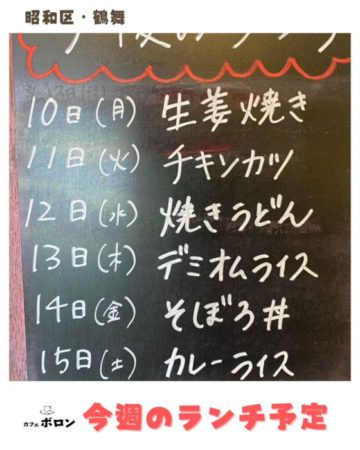 昭和区・鶴舞
10日(月) 生姜焼き
11日(火) チキンカツ
12日(水) 焼きうどん
13日(木) デミオムライス
14日(金) そぼろ丼
15日(土) カレーライス
カフェ ボロン
今週のランチ予定